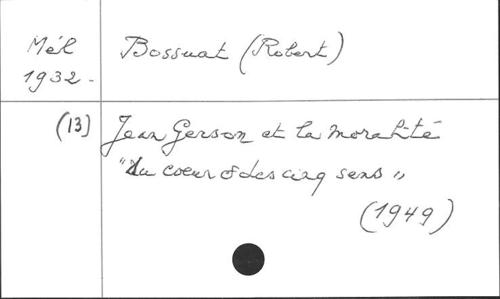 Mél
1932-
Bossuat (Robert)
(13)
Jean Gerson et la moralité
"du coeur & des cinq sens"
(1949)